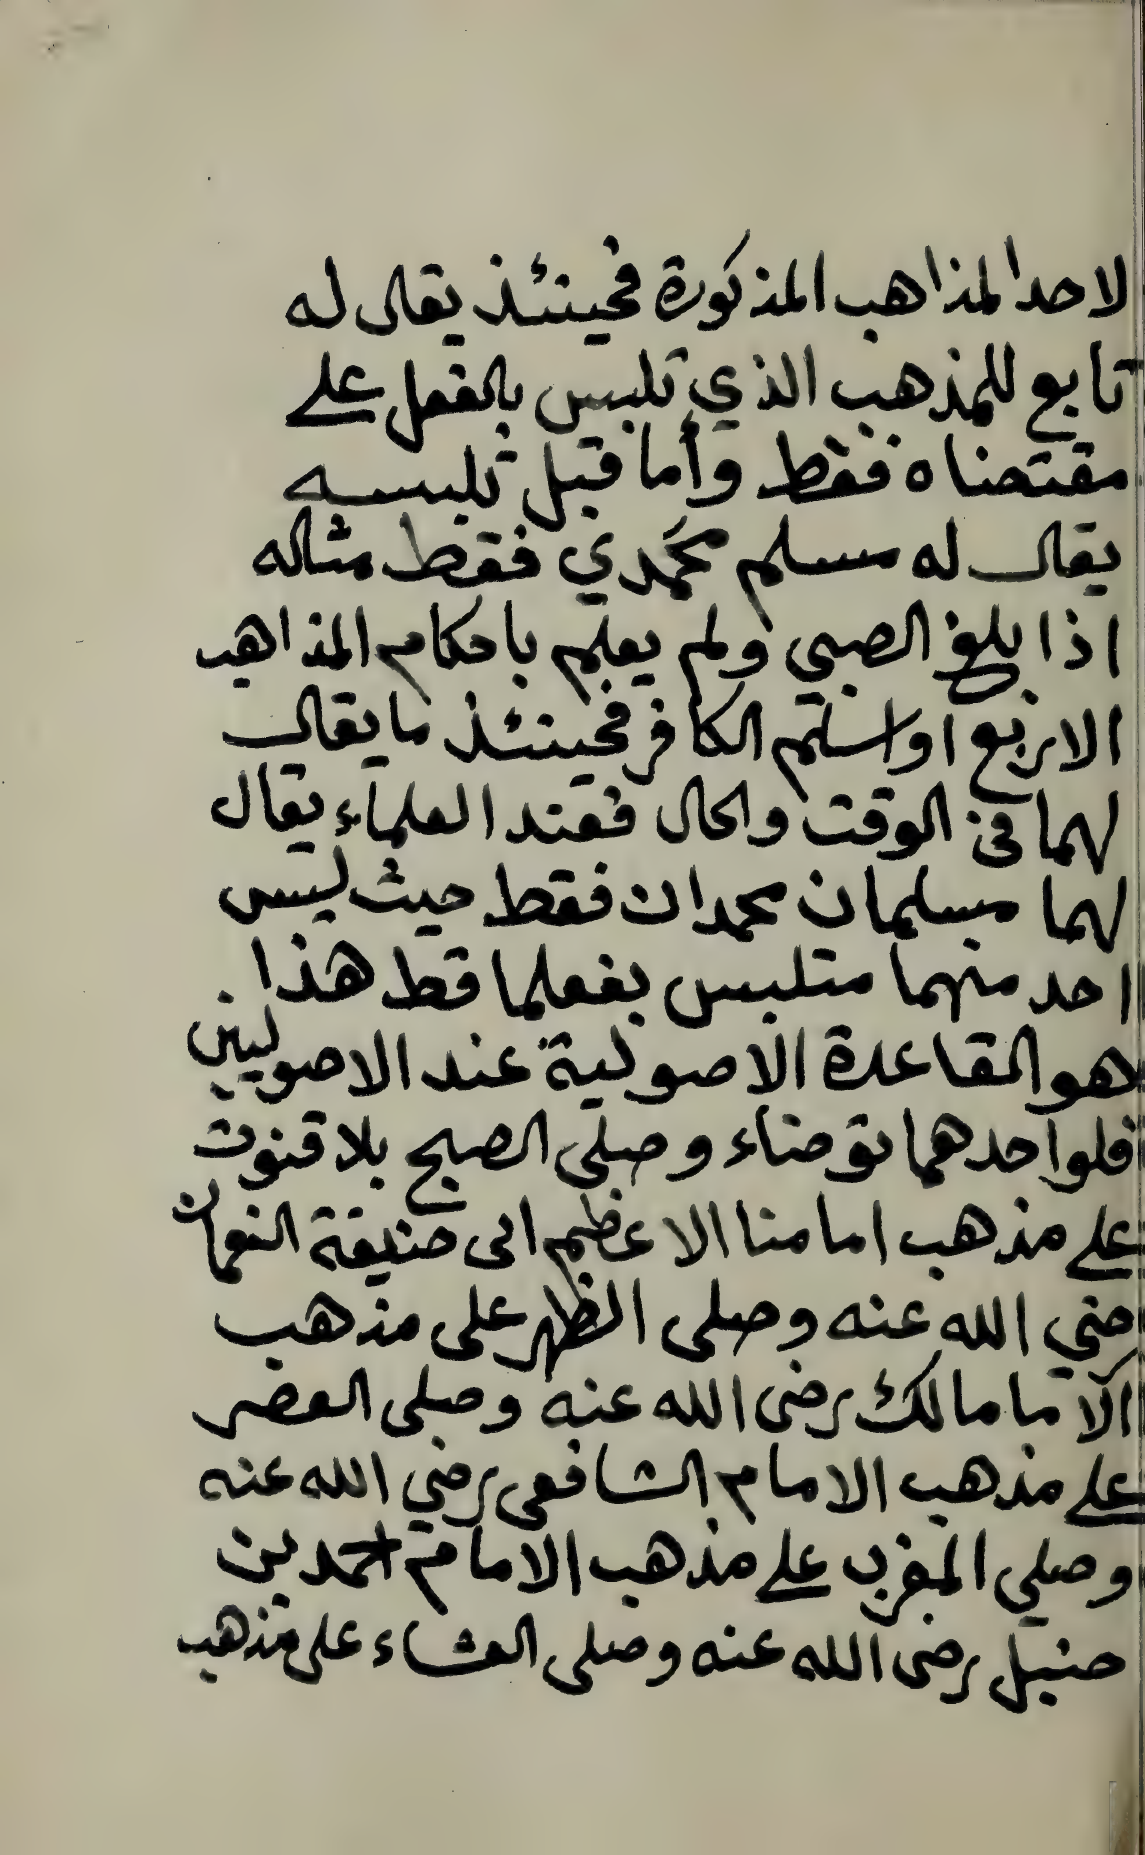 لاحد المذاهب المذكورة فحينئذ يقال له
تابع للمذهب الذي تلبس بالفعل على
مقتضاه فقط وأما قبل تلبسه
يقال له مسلم محمدي فقط مثاله
اذا بلغ الصبي ولم يعلم باحكام المذاهب
الاربع او اسلم الكافر فحينئذ ما يقال
لهما في الوقت والحال فعند العلماء يقال
لهما مسلمان محمدان فقط حيث ليس
احد منهما متلبس بفعلما قط هذا
هو القاعدة الاصولية عند الاصوليين
فلو احدهما توضاء وصلى الصبح بلا قنوت
على مذهب امامنا الاعظم ابى حنيفة النعمان
رضي الله عنه وصلى الظهر على مذهب
الاما مالك رضى الله عنه وصلى العصر
على مذهب الامام الشافعى رضي الله عنه
وصلي المغرب على مذهب الامام احمد بن
حنبل رضى الله عنه وصلى العشاء على مذهب